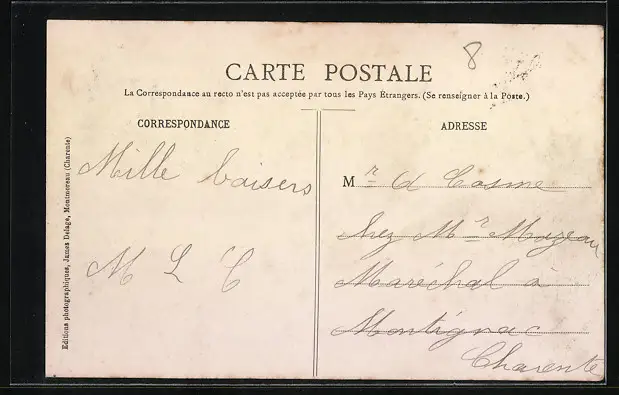 8
CARTE POSTALE
La Correspondance au recto n'est pas acceptée par tous les Pays Étrangers. (Se renseigner à la Poste.)
CORRESPONDANCE
ADRESSE
Mille baisers
M L C
Mr d Cosme
chez Mr Mazeau
Maréchal à
Montignac
Charente
Editions photographiques, James Delage, Montmoreau (Charente)